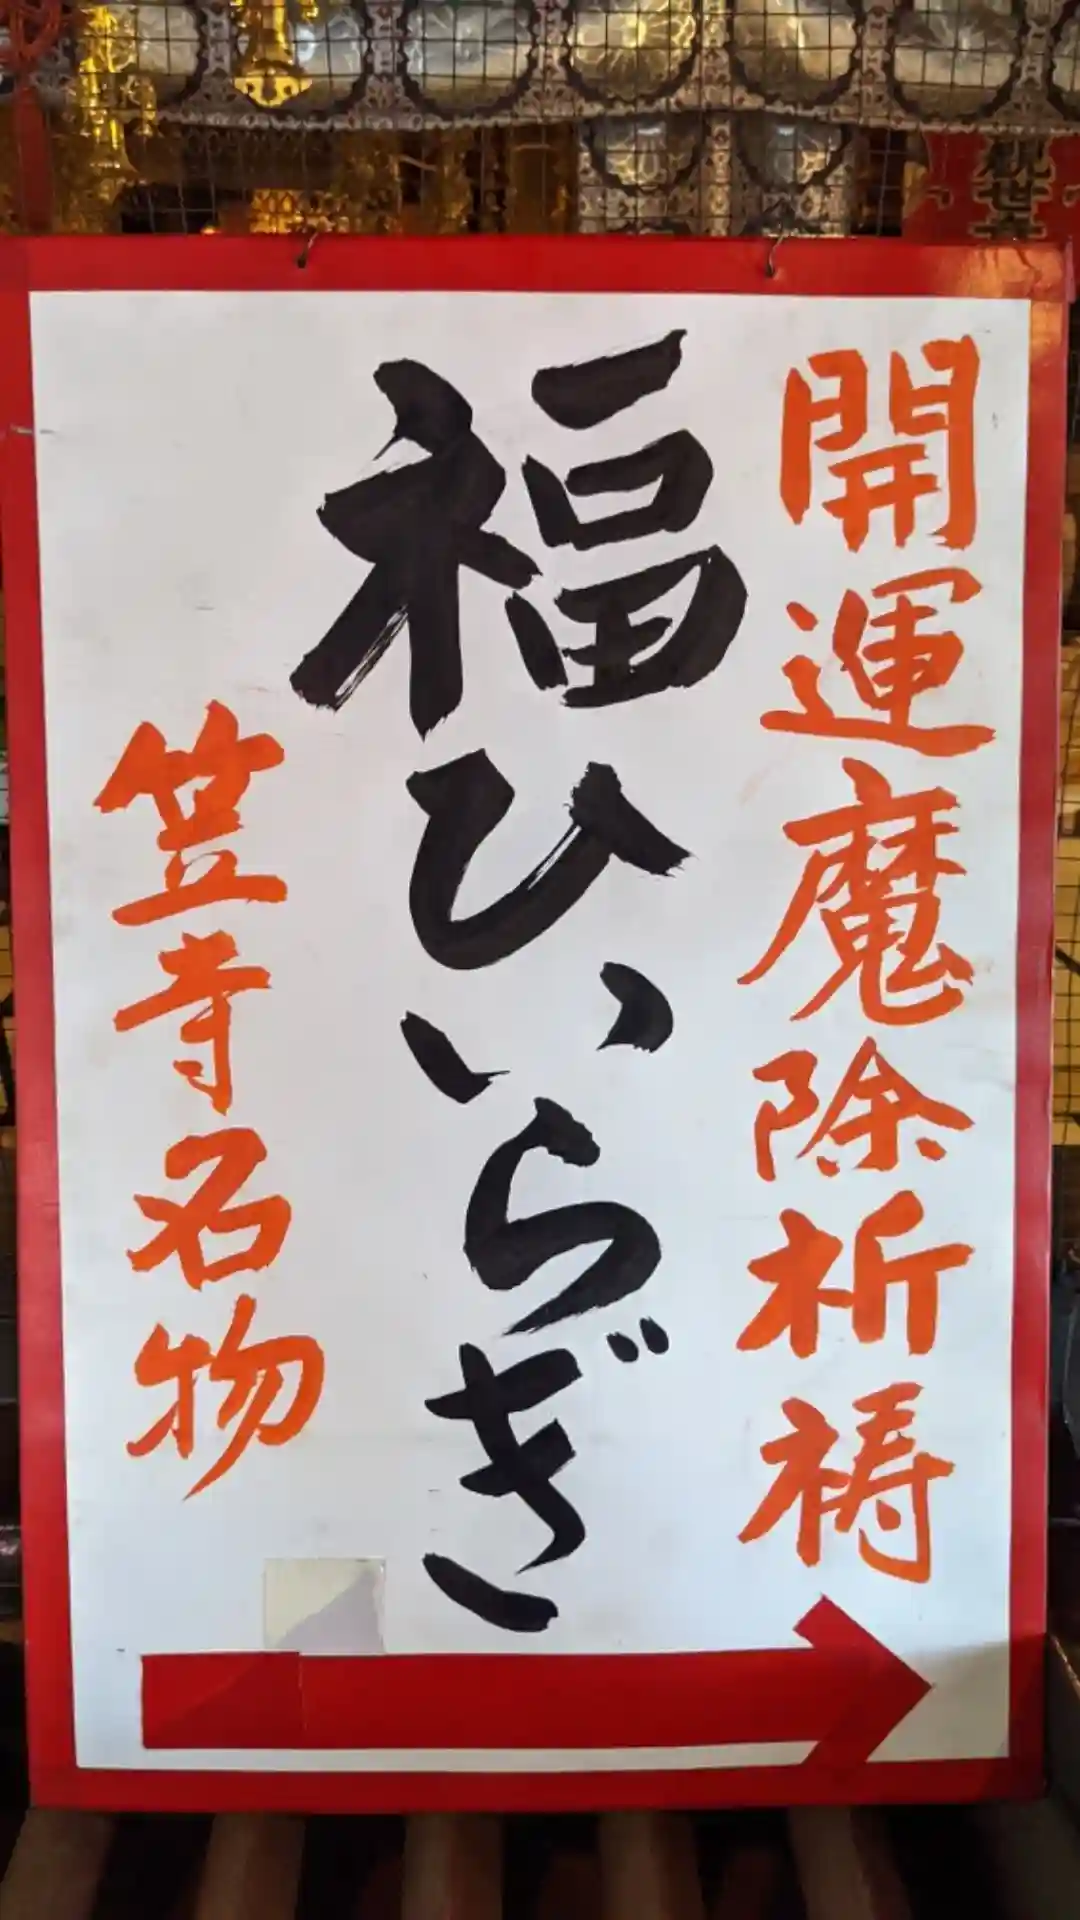 開運魔除祈祷
福ひいらぎ
笠寺名物
観世音